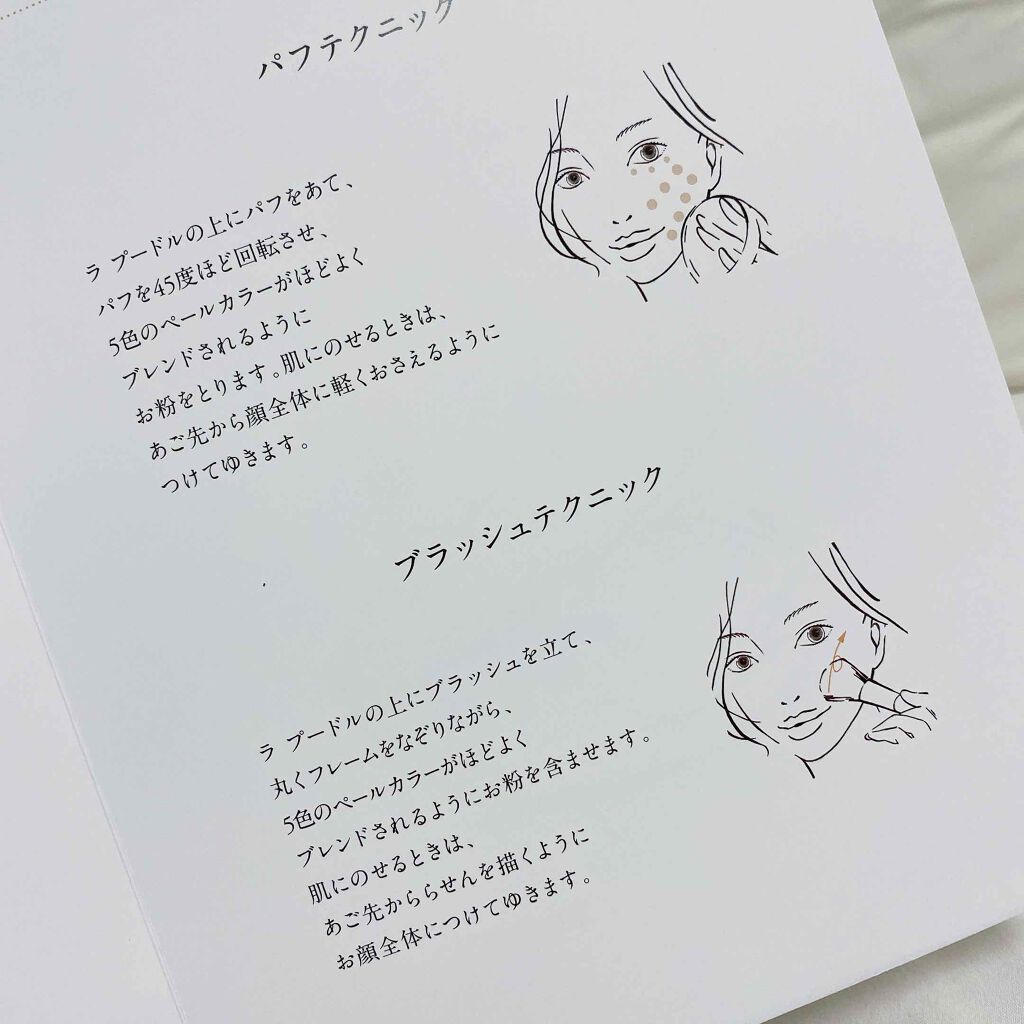 パフテクニック
ラ プードルの上にパフをあて、
パフを45度ほど回転させ、
5色のペールカラーがほどよく
ブレンドされるように
お粉をとります。肌にのせるときは、
あご先から顔全体に軽くおさえるように
つけてゆきます。
ブラッシュテクニック
ラ プードルの上にブラッシュを立て、
丸くフレームをなぞりながら、
5色のペールカラーがほどよく
ブレンドされるようにお粉を含ませます。
肌にのせるときは、
あご先かららせんを描くように
お顔全体につけてゆきます。